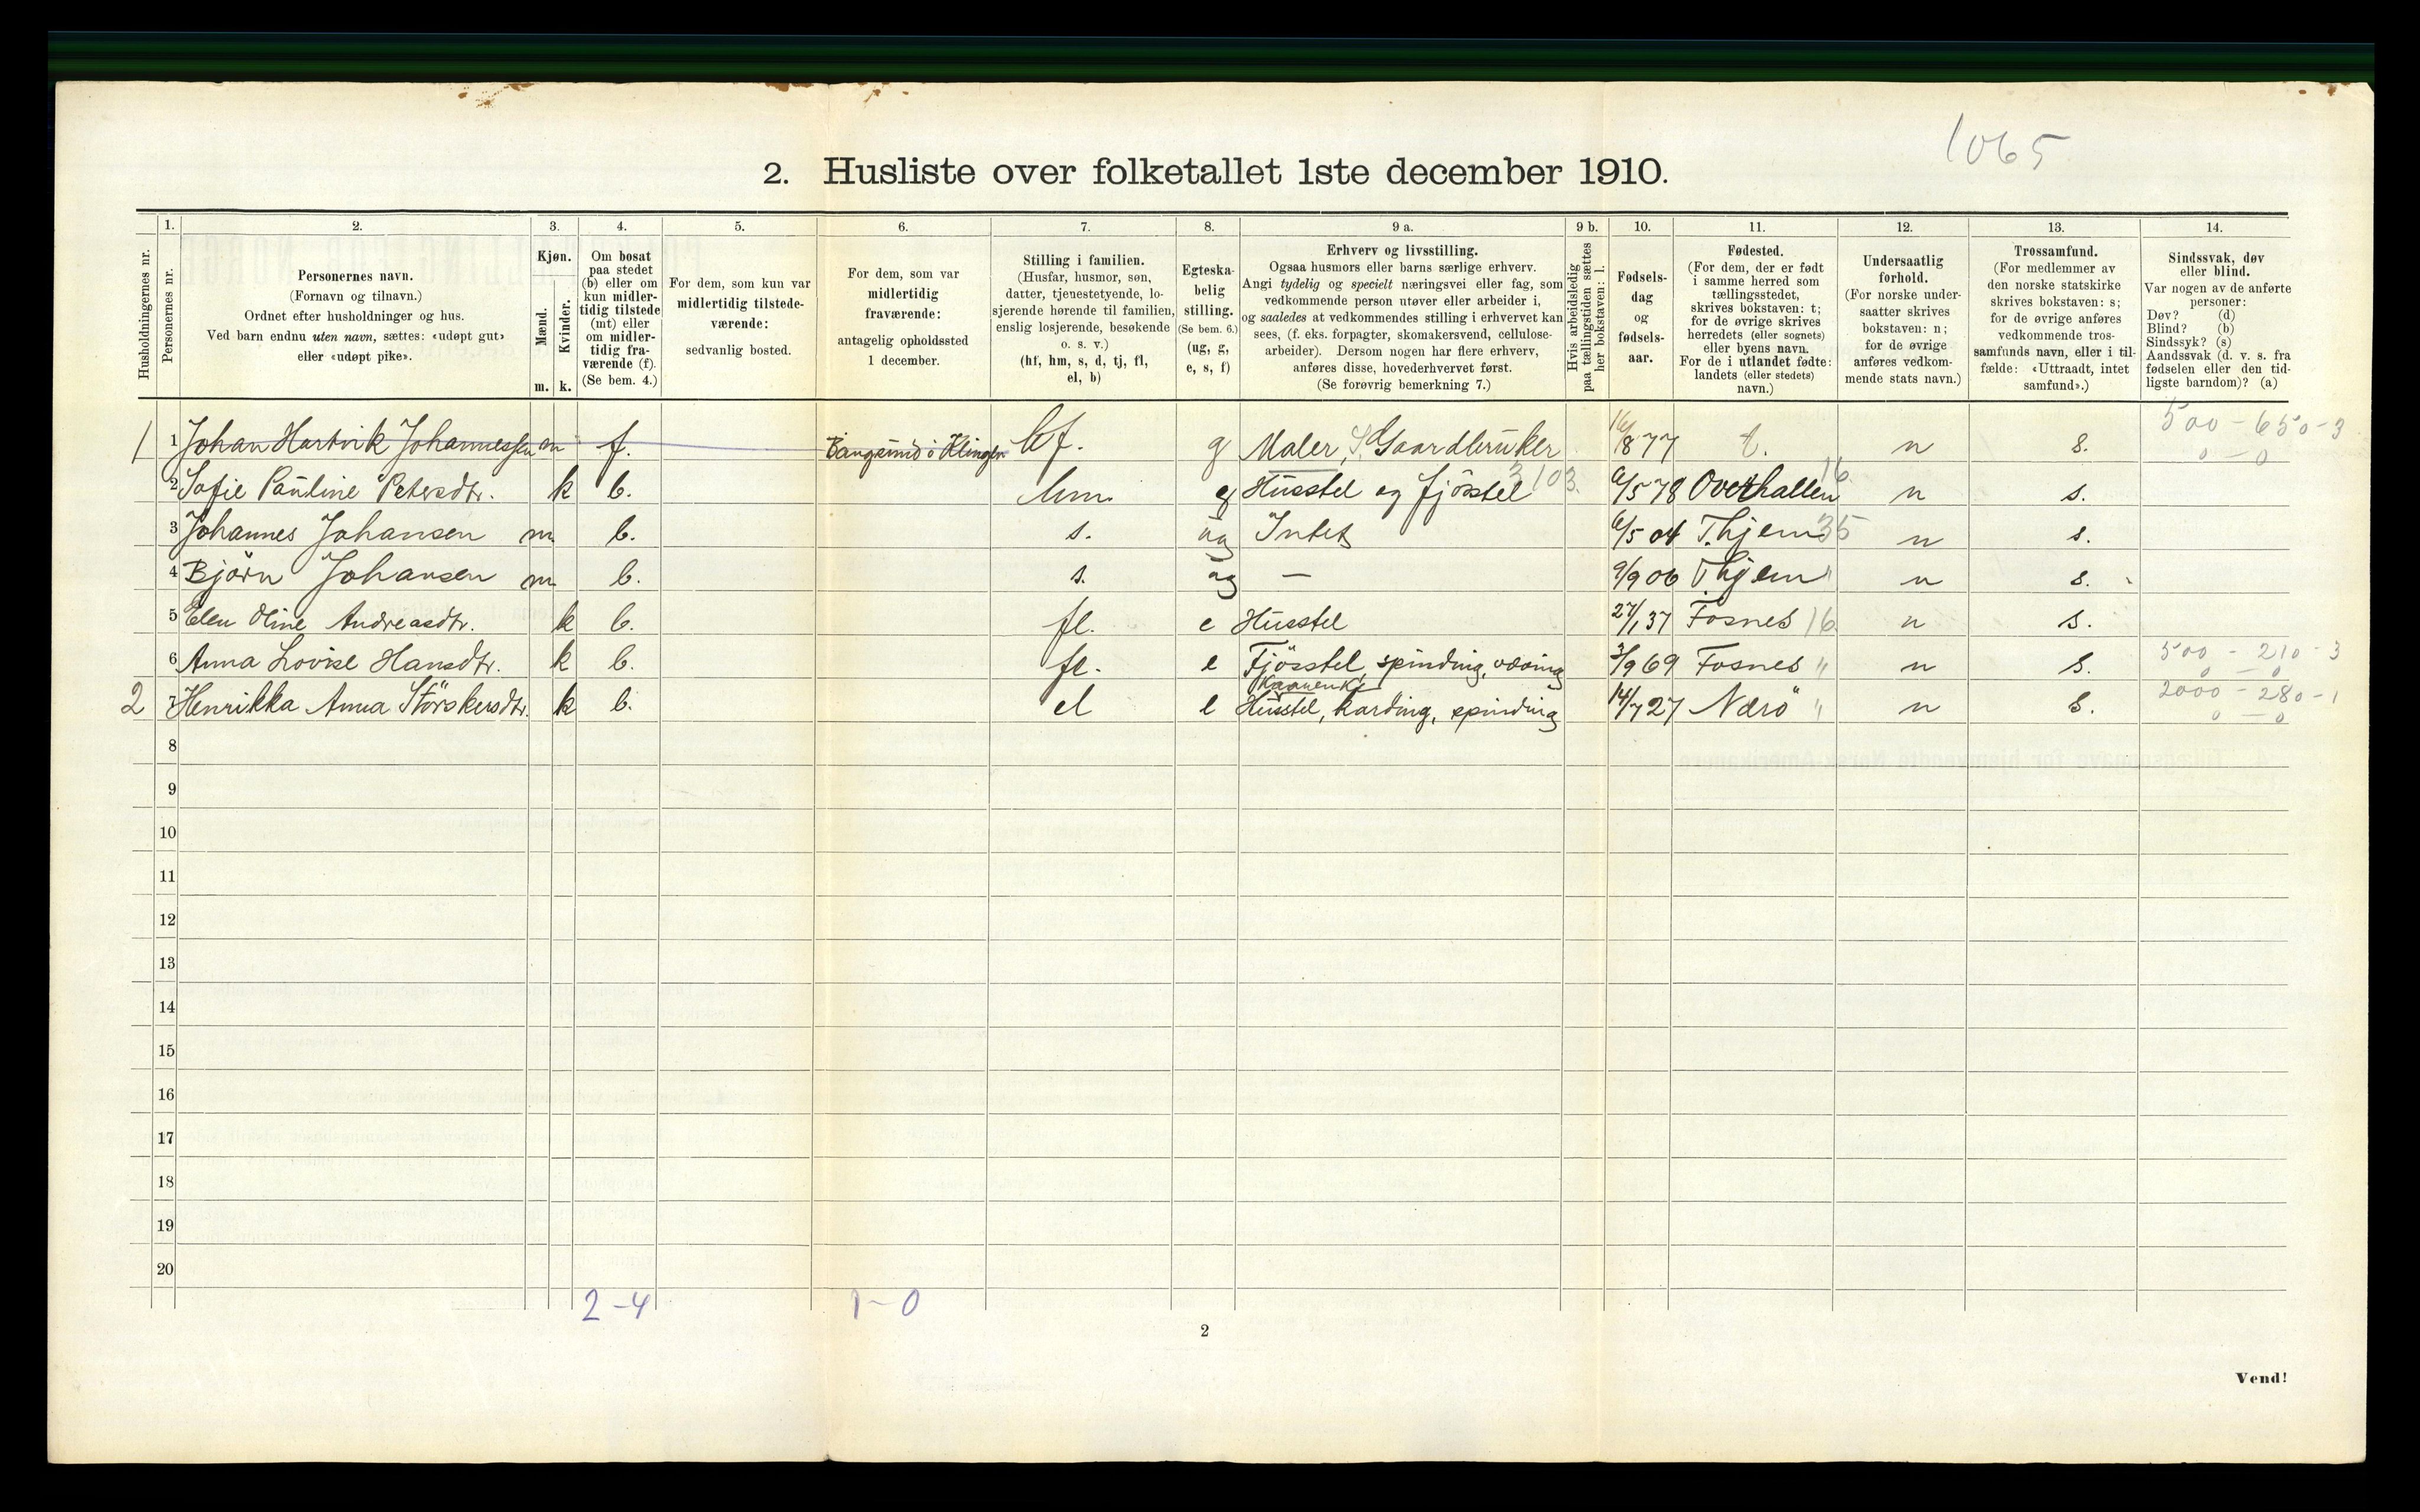 1065
2. Husliste over folketallet 1ste december 1910.
Husholdningernes nr.
1.
Personernes nr.
2.
Personernes navn.
(Fornavn og tilnavn.)
Ordnet efter husholdninger og hus.
Ved barn endnu uten navn, sættes: «udøpt gut»
eller «udøpt pike».
3.
Kjøn.
Mænd.
Kvinder.
m. k.
4.
Om bosat
paa stedet
(b) eller om
kun midler-
tidig tilstede
(mt) eller
om midler-
tidig fra-
værende (f).
(Se bem. 4.)
5.
For dem, som kun var
midlertidig tilstede-
værende:
sedvanlig bosted.
6.
For dem, som var
midlertidig
fraværende:
antagelig opholdssted
1 december.
7.
Stilling i familien.
(Husfar, husmor, søn,
datter, tjenestetyende, lo-
sjerende hørende til familien,
enslig losjerende, besøkende
o. s. v.)
(hf, hm, s, d, tj, fl,
el, b)
8.
Egteska-
belig
stilling.
(Se bem. 6.)
(ug, g,
e, s, f)
9 a.
Erhverv og livsstilling.
Ogsaa husmors eller barns særlige erhverv.
Angi tydelig og specielt næringsvei eller fag, som
vedkommende person utøver eller arbeider i,
og saaledes at vedkommendes stilling i erhvervet kan
sees, (f. eks. forpagter, skomakersvend, cellulose-
arbeider). Dersom nogen har flere erhverv,
anføres disse, hovederhvervet først.
(Se forøvrig bemerkning 7.)
9 b.
Hvis arbeidsledig
paa tællingstiden sættes
her bokstaven: l.
10.
Fødsels-
dag
og
fødsels-
aar.
11.
Fødested.
(For dem, der er født
i samme herred som
tællingsstedet,
skrives bokstaven: t;
for de øvrige skrives
herredets (eller sognets)
eller byens navn.
For de i utlandet fødte:
landets (eller stedets)
navn.)
12.
Undersaatlig
forhold.
(For norske under-
saatter skrives
bokstaven: n;
for de øvrige
anføres vedkom-
mende stats navn.)
13.
Trossamfund.
(For medlemmer av
den norske statskirke
skrives bokstaven: s;
for de øvrige anføres
vedkommende tros-
samfunds navn, eller i til-
fælde: «Uttraadt, intet
samfund».)
14.
Sindssvak, døv
eller blind.
Var nogen av de anførte
personer:
Døv? (d)
Blind? (b)
Sindssyk? (s)
Aandssvak (d. v. s. fra
fødselen eller den tid-
ligste barndom)? (a)
1 1 Johan Hartvik Johannessen m f. Bangsund i Klingen hf. g Maler, S Gaardbruker 16/8 77 t. n s. 500 - 650 - 3
0 - 0
2 Sofie Pauline Petersdtr. k b. hm. g Husstel og fjösstel 3 103. 6/5 78 Overhallen 16 n s.
3 Johannes Johansen m b. s. ug Intet 6/5 04 T.hjem 35 n s.
4 Björn Johansen m b. s. ug — 9/9 06 T.hjem " n s.
5 Elen Oline Andreasdtr. k b. fl. e Husstel 27/1 37 Fosnes 16 n s.
6 Anna Lovise Hansdtr. k b. fl. e Fjösstel, spinding, væving 3/9 69 Fosnes " n s. 500 - 210 - 3
0 - 0
2 7 Henrikka Anna Störskersdtr. k b. el e Husstel, karding, spinding 14/7 27 Nærö " n s. 2000 - 280 - 1
0 - 0
8
9
10
11
12
13
14
15
16
17
18
19
20
2 - 4 1 - 0
2
Vend!